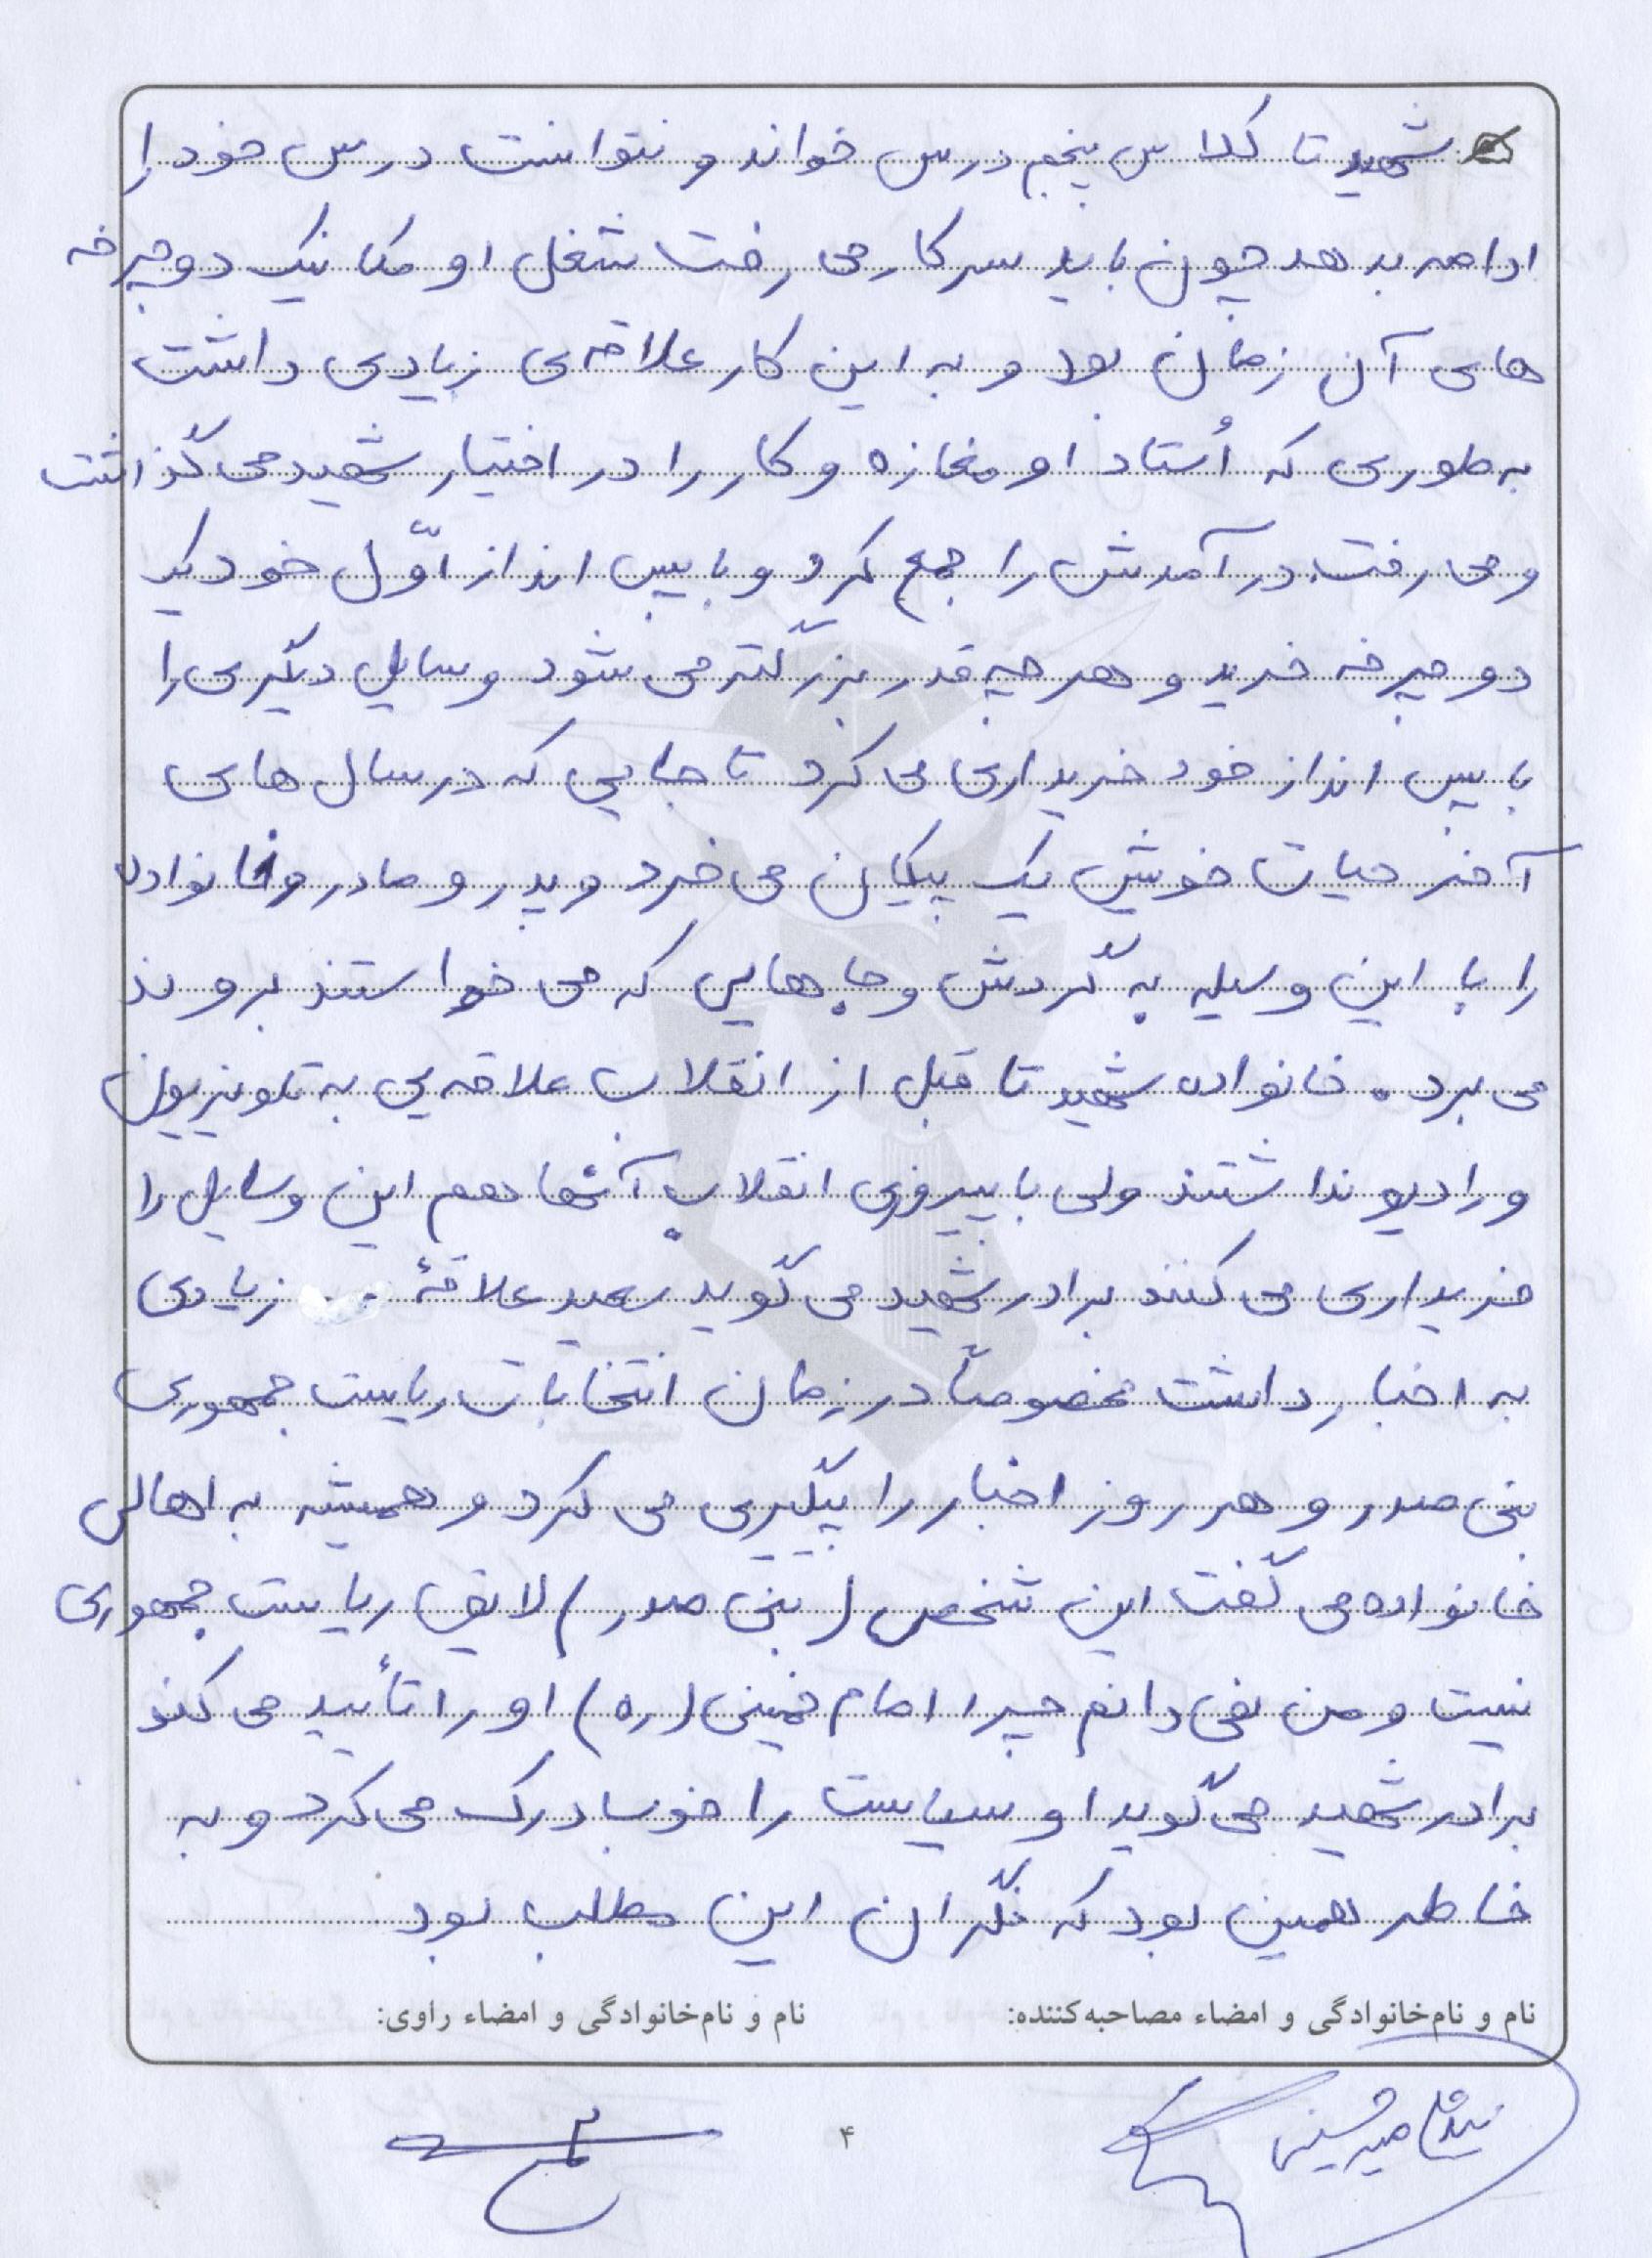 شهید تا کلاس پنجم درس خواند و نتوانست درس خود را
ادامه بدهد چون باید سرکار می رفت شغل او مکانیک دوچرخه
های آن زمان بود و به این کار علاقه ی زیادی داشت
به طوری که اُستاد او مغازه و کار را در اختیار شهید می گذاشت
و می رفت. درآمدش را جمع کرد و با پس انداز اوّل خود یک
دوچرخه خرید و هر چه قدر بزرگتر می شود وسایل دیگری را
با پس انداز خود خریداری می کرد تا جایی که در سال های
آخر حیات خوش یک پیکان می خرد و پدر و مادر و خانواده
را با این وسیله به گردش و جاهایی که می خواستند بروند
می برد. خانواده شهید تا قبل از انقلاب علاقه یی به تلویزیون
و رادیو نداشتند ولی با پیروزی انقلاب آنها هم این وسایل را
خریداری می کنند برادر شهید می گوید سعید علاقهٔ زیادی
به اخبار داشت مخصوصاً در زمان انتخابات ریاست جمهوری
بنی صدر و هر روز اخبار را پیگیری می کرد و همیشه به اهالی
خانواده می گفت این شخص (بنی صدر) لایق ریاست جمهوری
نیست و من نمی دانم چرا امام خمینی (ره) او را تأیید می کند
برادر شهید می گوید او سیاست را خوب درک می کرد و به
خاطر همین بود که نگران این مطلب بود
نام و نام‌خانوادگی و امضاء مصاحبه‌کننده: نام و نام‌خانوادگی و امضاء راوی:
۴